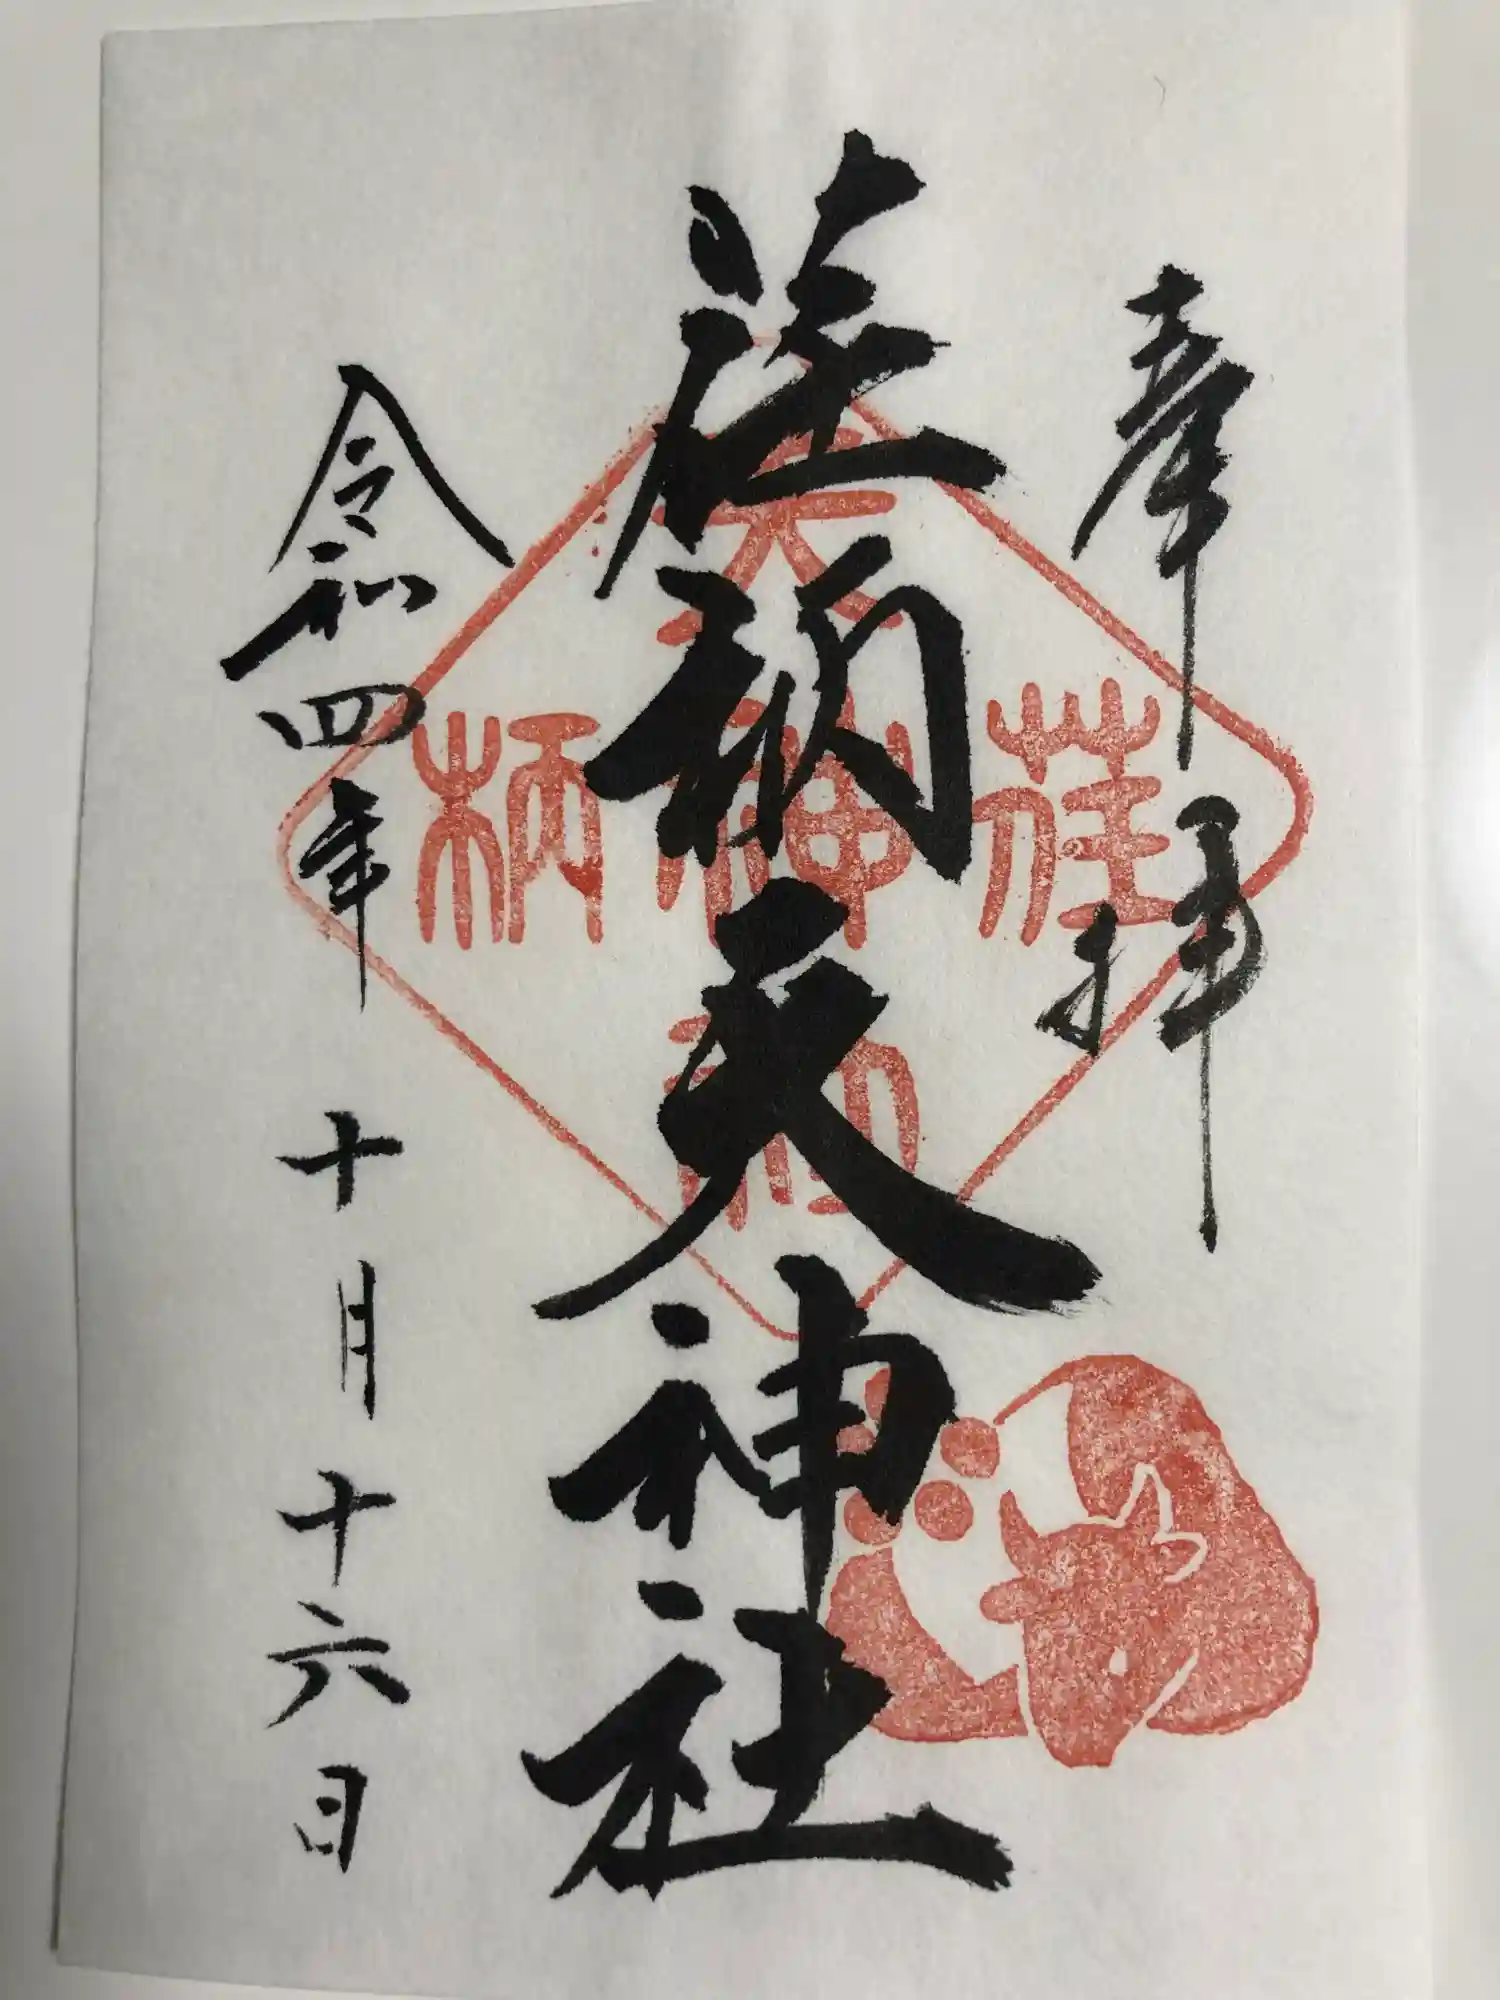 奉拝
荏柄天神社
天
荏神柄
社
令和四年十月十六日